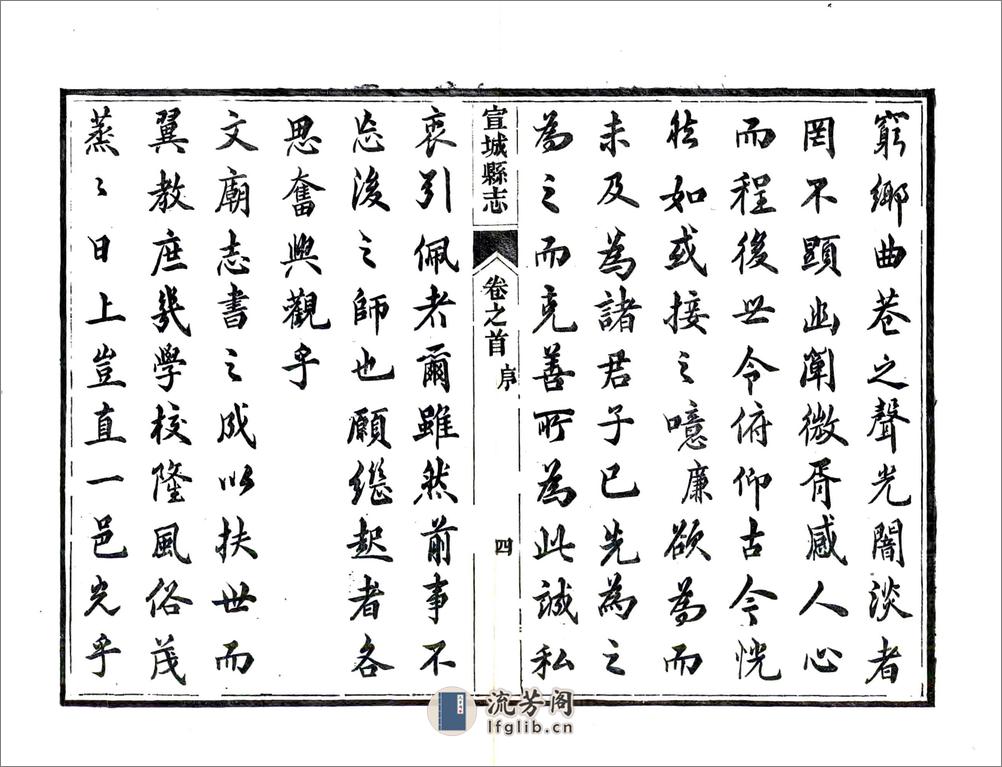 窮鄉曲巷之聲光闇淡者
罔不顯幽闡微胥感人心
而程後世令俯仰古今恍
然如或接之噫廉欲為而
未及為諸君子已先為之
為之而克善所為此誠私
宣城縣志
卷之首
序
四
衷引佩者爾雖然前事不
忘後之師也願繼起者各
思奮興觀乎
文廟志書之成以扶世而
翼教庶幾學校隆風俗茂
蒸〻日上豈直一邑光乎
流芳阁
lfglib.cn